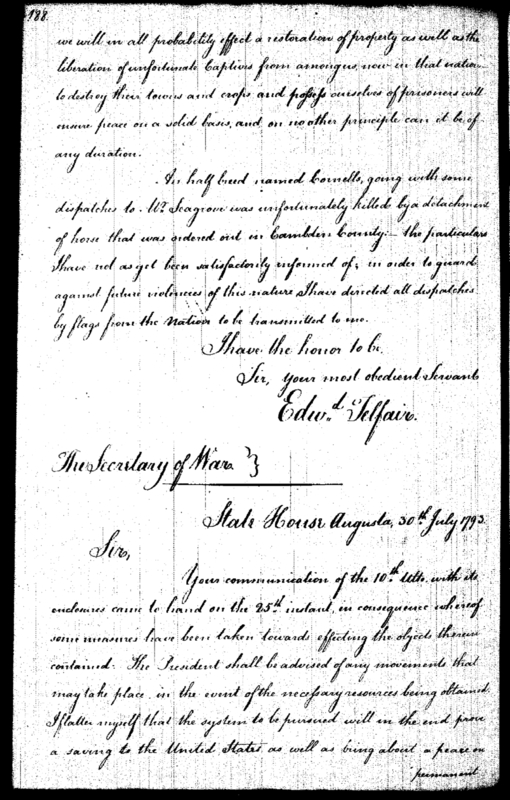 188.
we will in all probability effect a restoration of property as well as the
liberation of unfortunate Captives from among us, now in that nation
to destroy their towns and crops and possess ourselves of prisoners will
ensure peace on a solid basis, and on no other principle can it be of
any duration.
An half breed named Cornells, going with some
dispatches to Mr. Seagrove was unfortunately killed by a detachment
of horse that was ordered out in Cambden County:— the particulars
I have not as yet been satisfactorily informed of; in order to guard
against future violencies of this nature, I have directed all dispatches
by flags from the Nation to be transmitted to me.
I have the honor to be,
Sir, your most obedient Servant
Edwd. Telfair.
The Secretary of War. }
State House Augusta, 30th. July 1793.
Sir,
Your communication of the 10th. Ulto. with its
enclosures came to hand on the 25th. instant, in consequence whereof
some measures have been taken towards effecting the objects therein
contained. The President shall be advised of any movements that
may take place, in the event of the necessary resources being obtained.
I flatter myself that the system to be pursued will in the end prove
a saving to the United States, as well as bring about a peace on
permanent